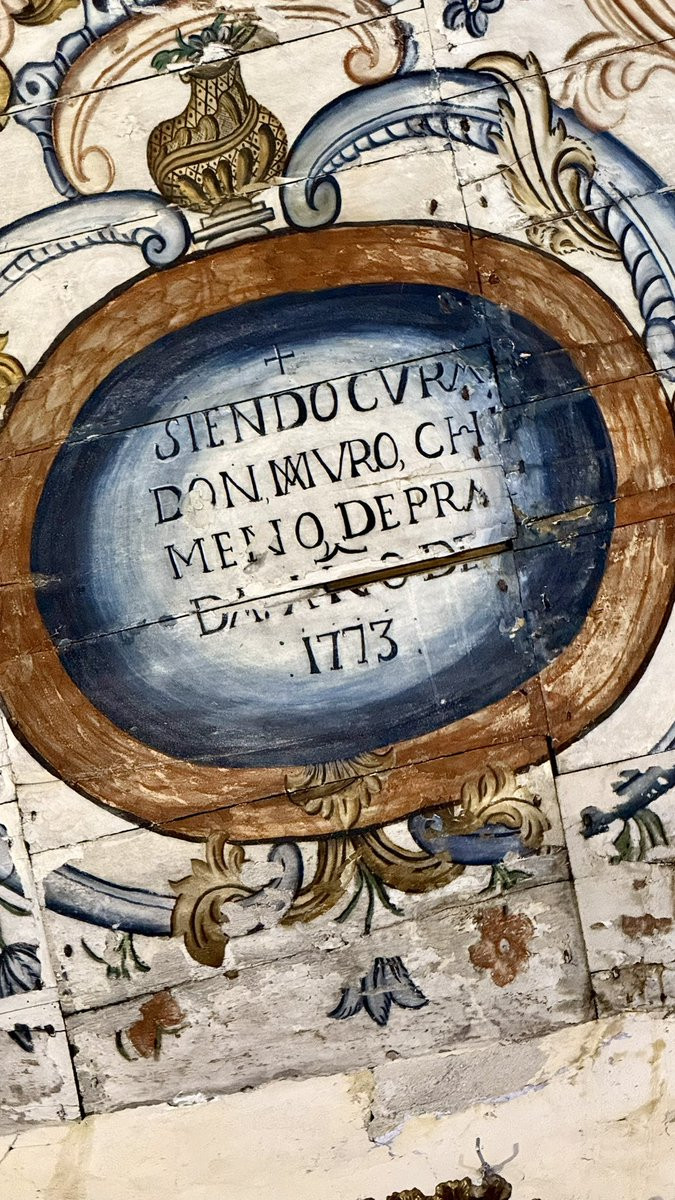 +
SIENDO CVRA
DON, MAVRO, CHI
MENO, DE PRA
DA, AÑO DE
1773